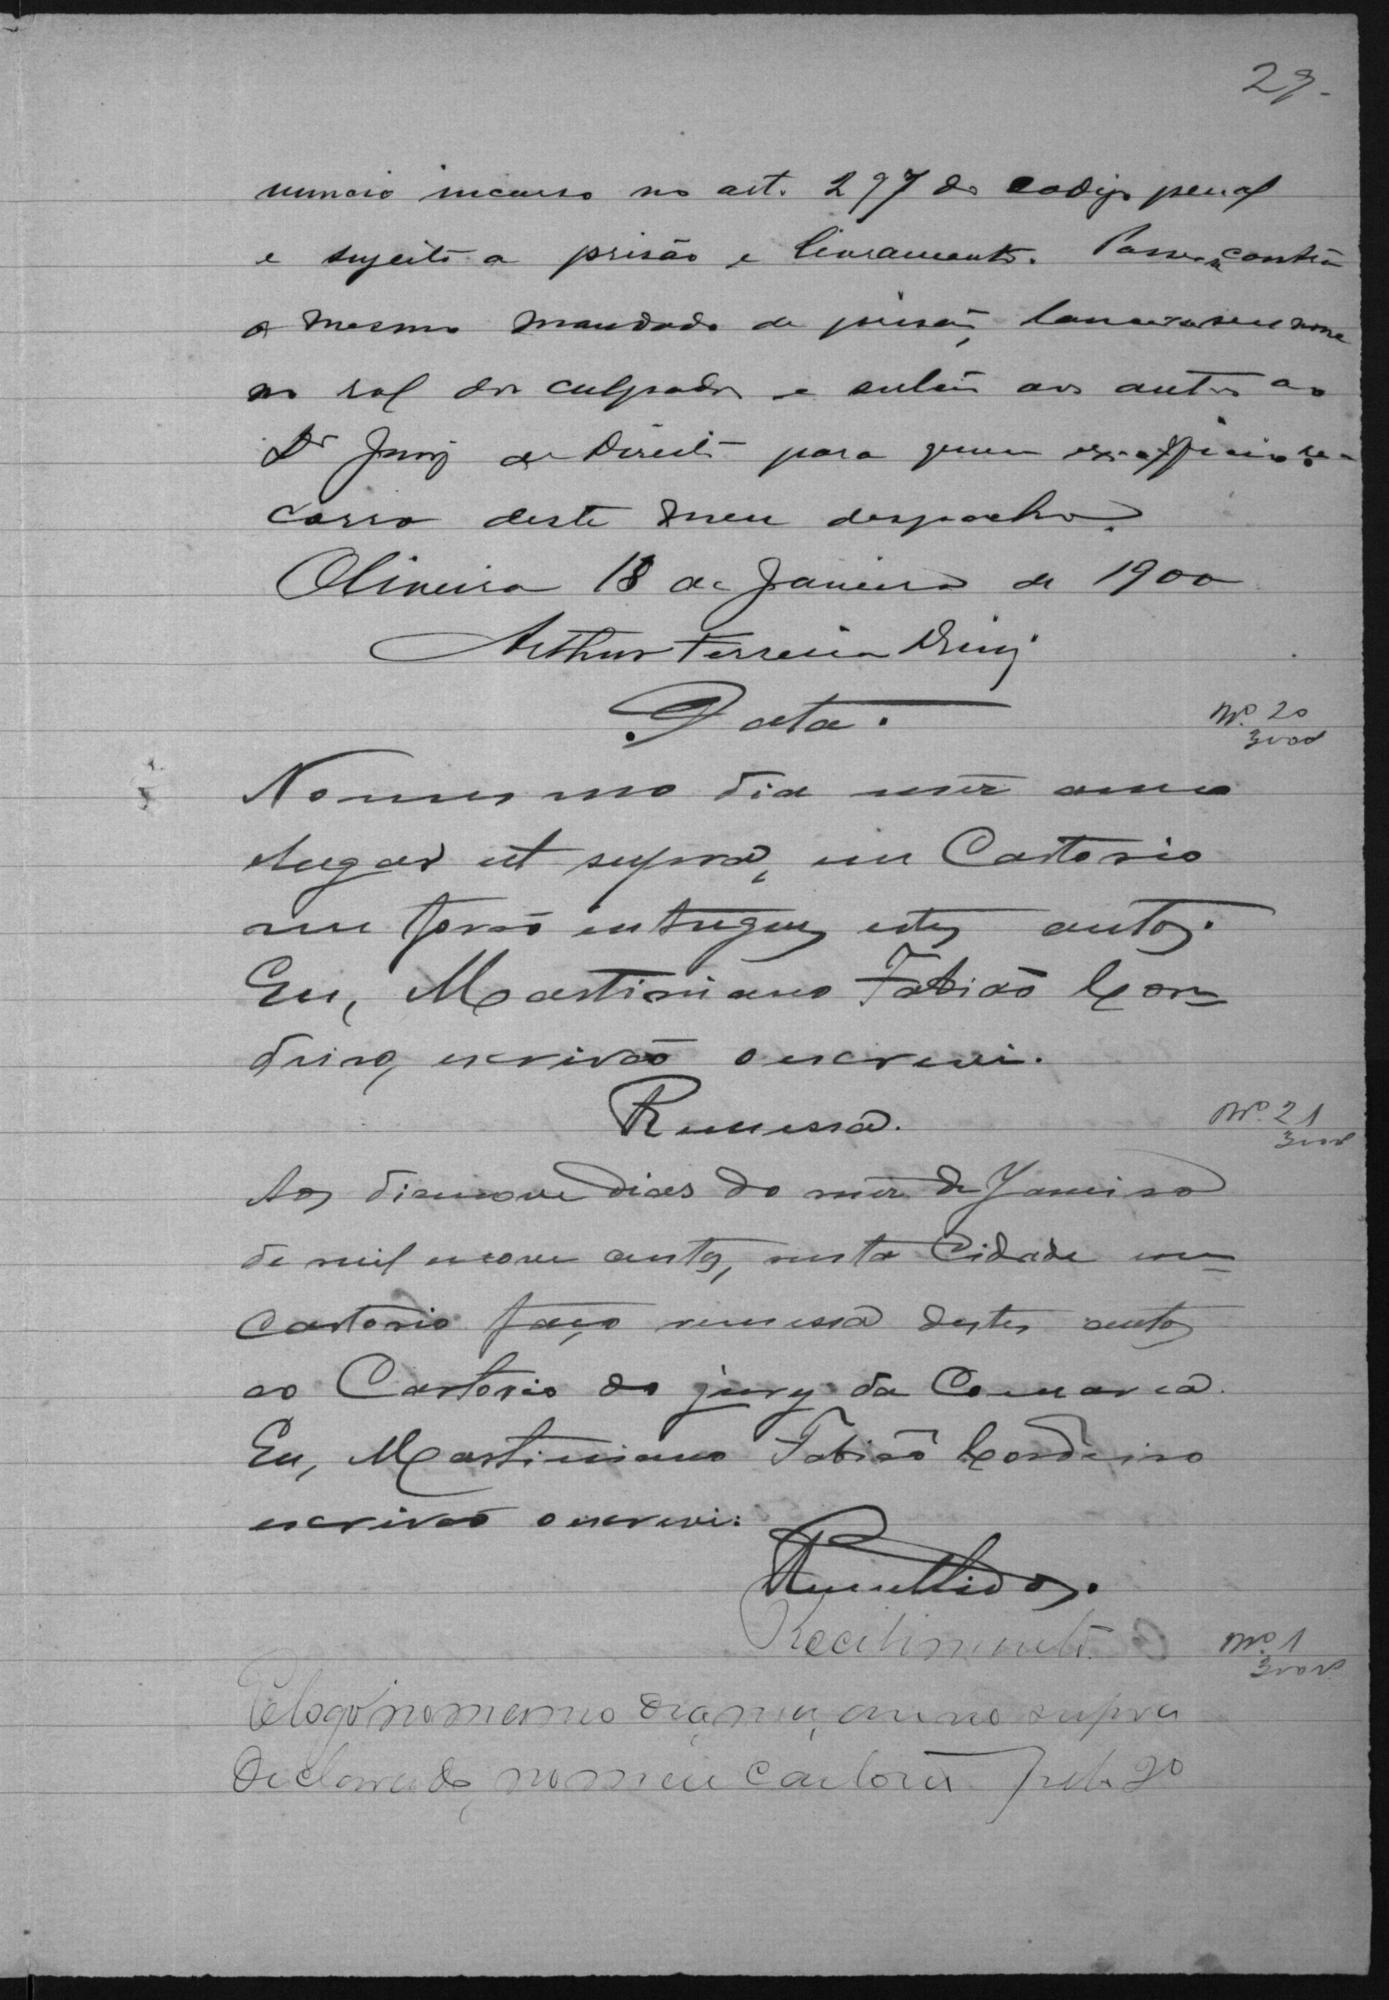 27.
nuncio incurso no art. 297 do codigo penal
e sujeito a prisão e livramento. Passe-se contra
o mesmo mandado de prisão, lance-se seu nome
no rol dos culpados e subão os autos ao
Dr Juiz de Direito para quem ex-officio re-
corro deste meu despacho.
Oliveira 18 de Janeiro de 1900
Arthur Ferreira Diniz
Data.
Nº 20
3000
No mesmo dia mez anno
e lugar ut supra, em Cartorio
me forão entregues estes autos.
Eu, Martiniano Fabião Cor-
deiro, escrivão o escrevi.
Remessa.
Nº 21
Aos dezenove dias do mez de Janeiro
de mil novecentos, nesta Cidade em
Cartorio faço remessa destes autos
ao Cartorio do jury da Comarca.
Eu, Martiniano Fabião Cordeiro
escrivão o escrevi.
Remettidos.
Recebimento.
Nº 1
E logo no mesmo dia, mez, anno supra
declarado, no meu cartorio pelo